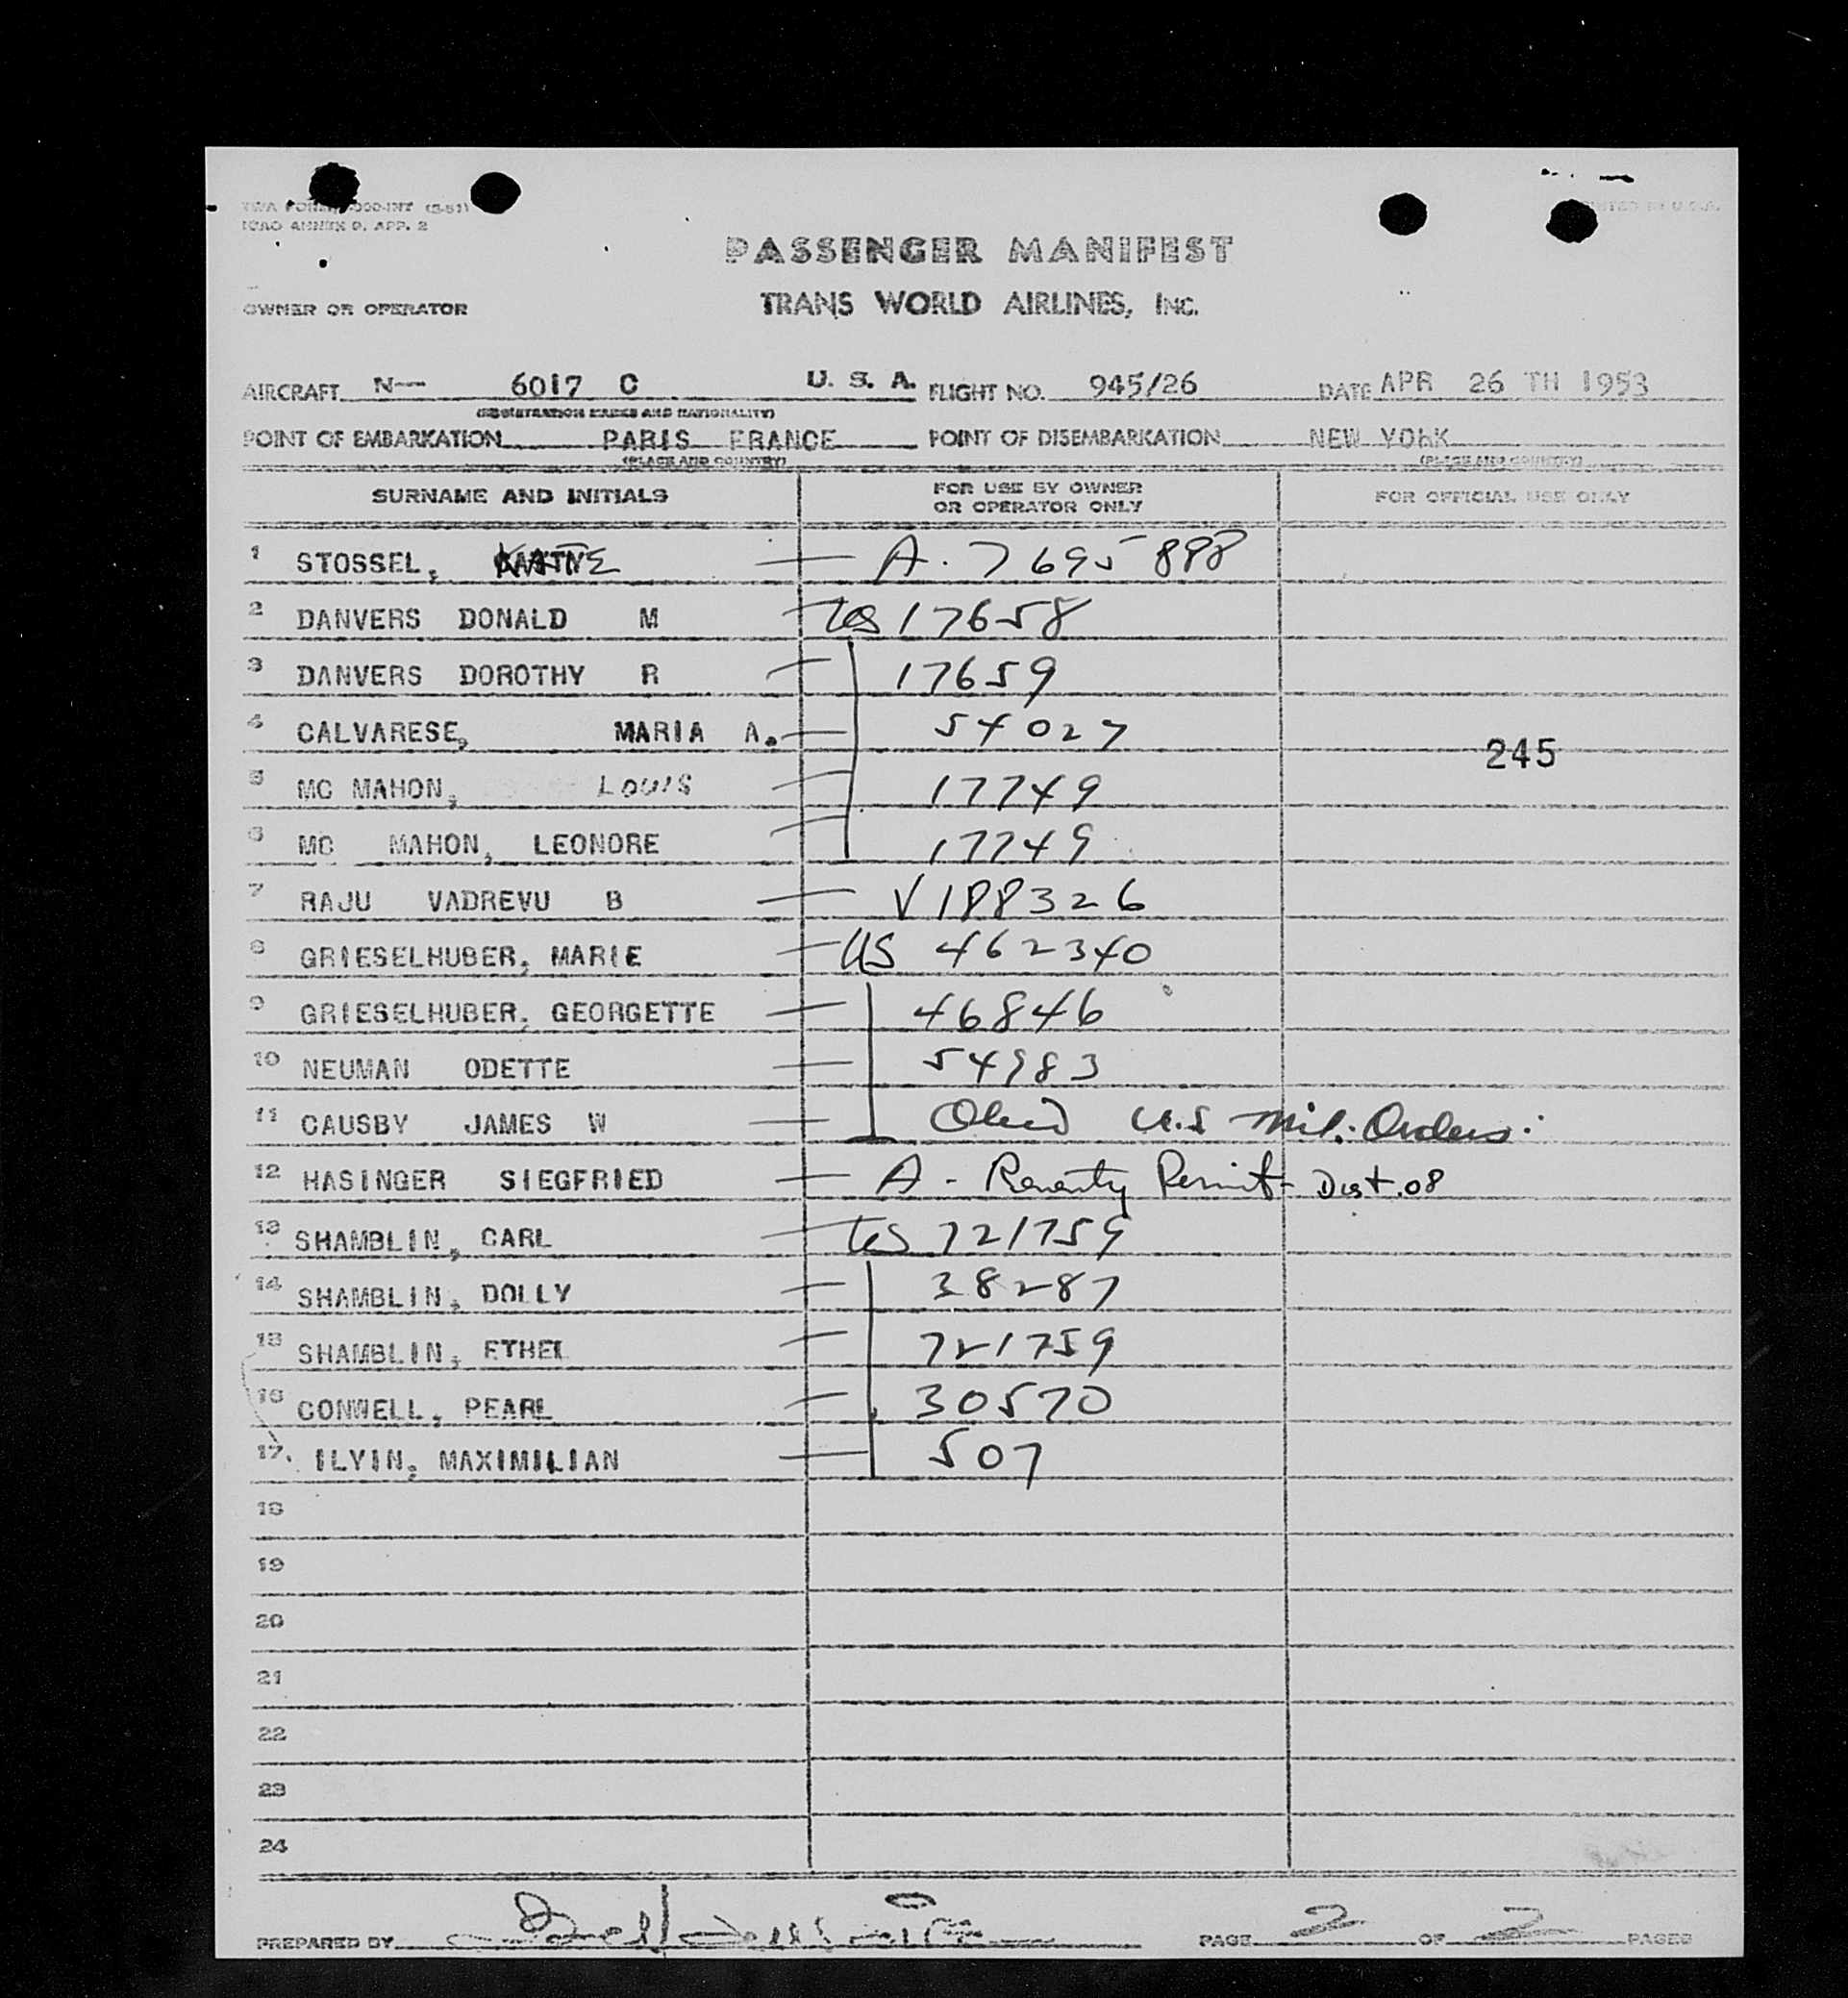 TWA FORM -000-INT (5-51)
ICAO ANNEX 9, APP. 2
PRINTED IN U.S.A.
PASSENGER MANIFEST
OWNER OR OPERATOR TRANS WORLD AIRLINES, INC.
AIRCRAFT N— 6017 C U. S. A. FLIGHT NO. 945/26 DATE APR 26 TH 1953
(REGISTRATION MARKS AND NATIONALITY)
POINT OF EMBARKATION PARIS FRANCE POINT OF DISEMBARKATION NEW YORK
(PLACE AND COUNTRY) (PLACE AND COUNTRY)
SURNAME AND INITIALS FOR USE BY OWNER OR OPERATOR ONLY FOR OFFICIAL USE ONLY
1 STOSSEL, — A. 7695898
2 DANVERS DONALD M — US 17658
3 DANVERS DOROTHY R — 17659
4 CALVARESE, MARIA A. — 54027
245
5 MC MAHON, LOUIS — 17749
6 MC MAHON, LEONORE — 17749
7 RAJU VADREVU B — V 188326
8 GRIESELHUBER, MARIE — US 462340
9 GRIESELHUBER, GEORGETTE — 46846
10 NEUMAN ODETTE — 54983
11 CAUSBY JAMES W — U.S Mil. Orders.
12 HASINGER SIEGFRIED — A - Reentry Permit - Dist. 08
13 SHAMBLIN, CARL — US 721759
14 SHAMBLIN, DOLLY — 38287
15 SHAMBLIN, ETHEL — 721759
16 CONWELL, PEARL — 30570
17. ILYIN, MAXIMILIAN — 507
18
19
20
21
22
23
24
PREPARED BY PAGE 2 OF 2 PAGES